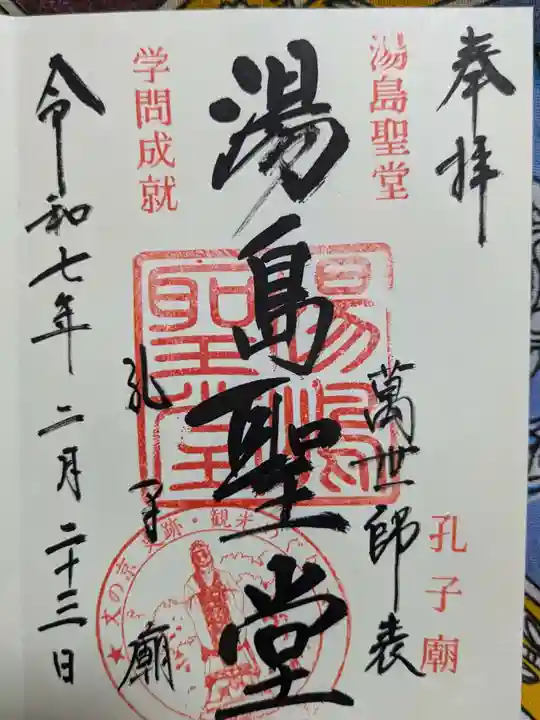 奉拝
湯島聖堂
孔子廟
萬世師表
湯島聖堂
湯島聖堂
孔子廟
学問成就
令和七年二月二十三日
文の京 史跡・観光